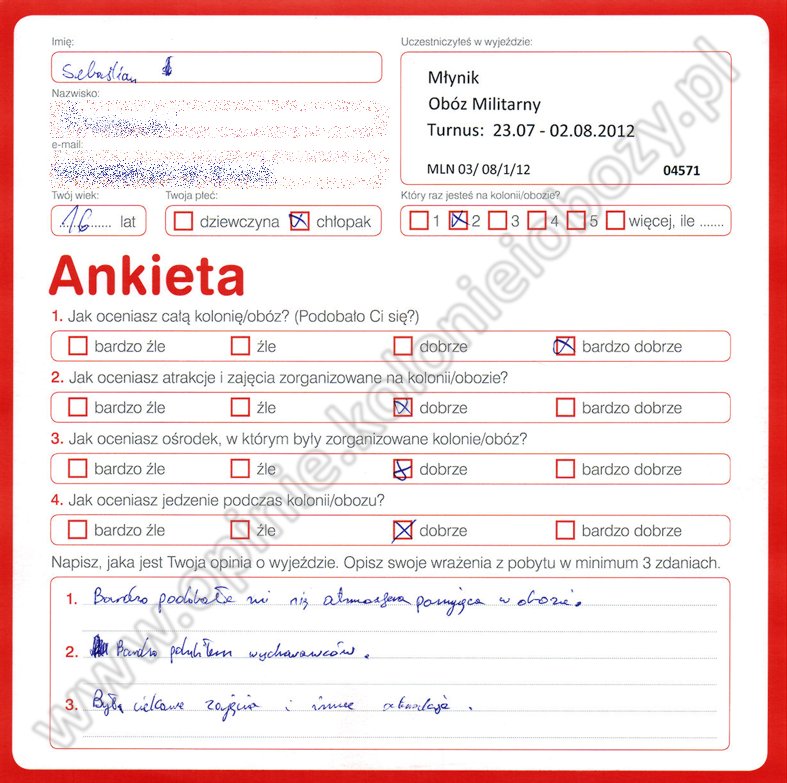 Imię:
Sebastian
Uczestniczyłeś w wyjeździe:
Młynik
Obóz Militarny
Turnus: 23.07 - 02.08.2012
MLN 03/ 08/1/12 04571
Nazwisko:
e-mail:
Twój wiek: Twoja płeć: Który raz jesteś na kolonii/obozie?
16 lat dziewczyna chłopak 1 2 3 4 5 więcej, ile .......
Ankieta
1. Jak oceniasz całą kolonię/obóz? (Podobało Ci się?)
bardzo źle źle dobrze bardzo dobrze
2. Jak oceniasz atrakcje i zajęcia zorganizowane na kolonii/obozie?
bardzo źle źle dobrze bardzo dobrze
3. Jak oceniasz ośrodek, w którym były zorganizowane kolonie/obóz?
bardzo źle źle dobrze bardzo dobrze
4. Jak oceniasz jedzenie podczas kolonii/obozu?
bardzo źle źle dobrze bardzo dobrze
Napisz, jaka jest Twoja opinia o wyjeździe. Opisz swoje wrażenia z pobytu w minimum 3 zdaniach.
1. Bardzo podobała mi się atmosfera panująca w obozie.
2. Bardzo polubiłem wychowawców.
3. Były ciekawe zajęcia i inne atrakcje.
www.opinie.kolonieiobozy.pl